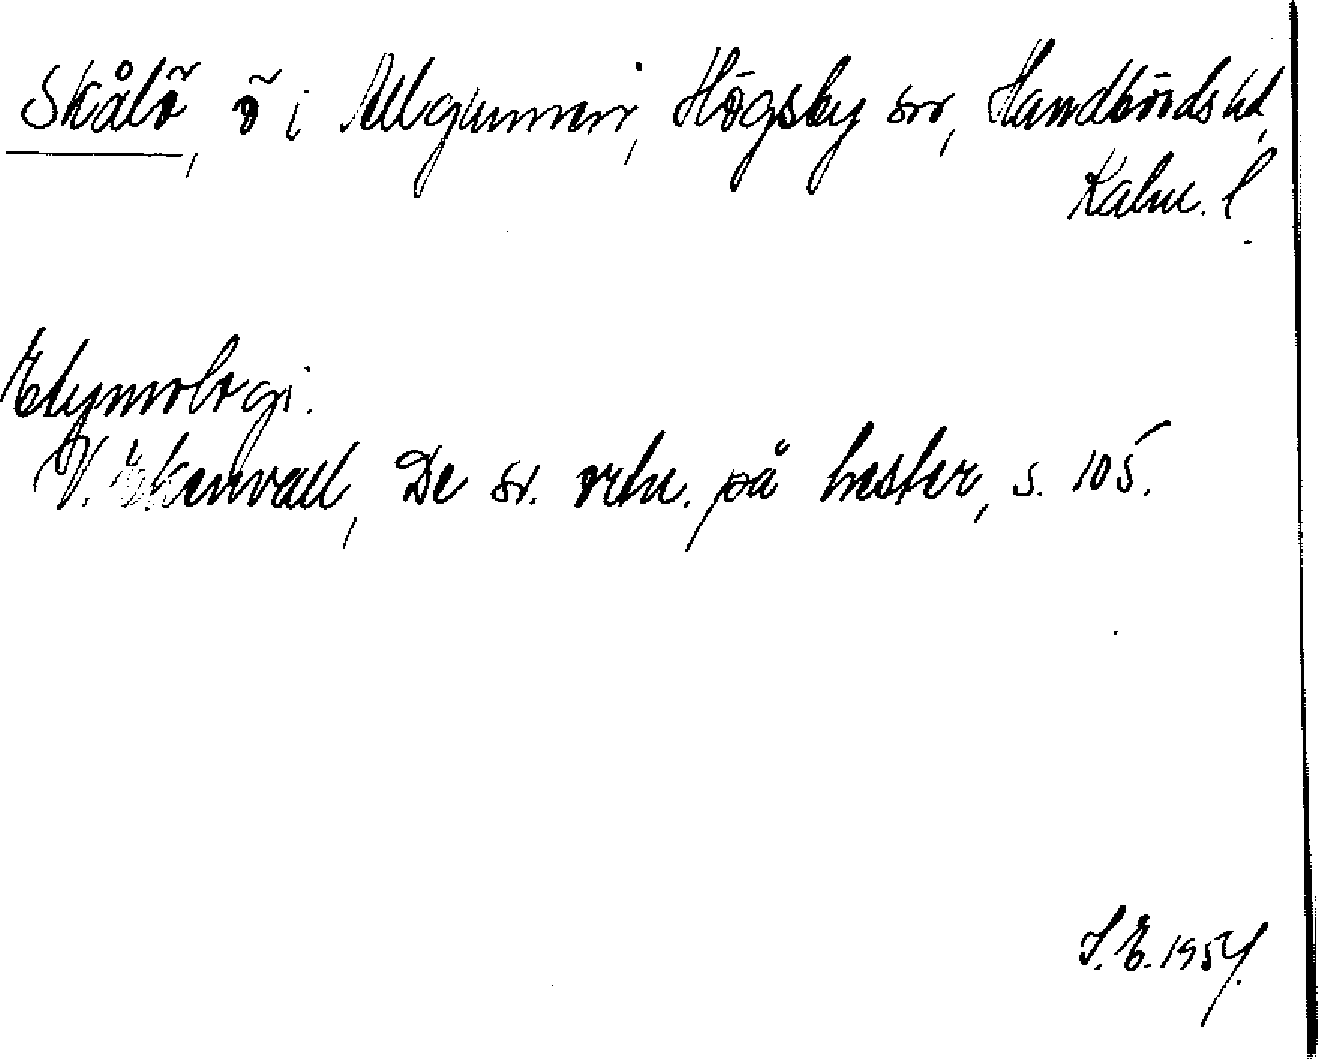 Skålö, ö i Allgunnen, Högsby sn, Handbörds hd,
Kalm. l.
Etymologi.
V. Ekenvall, De sv. ortn. på hester, s. 105.
S. E. 1954.